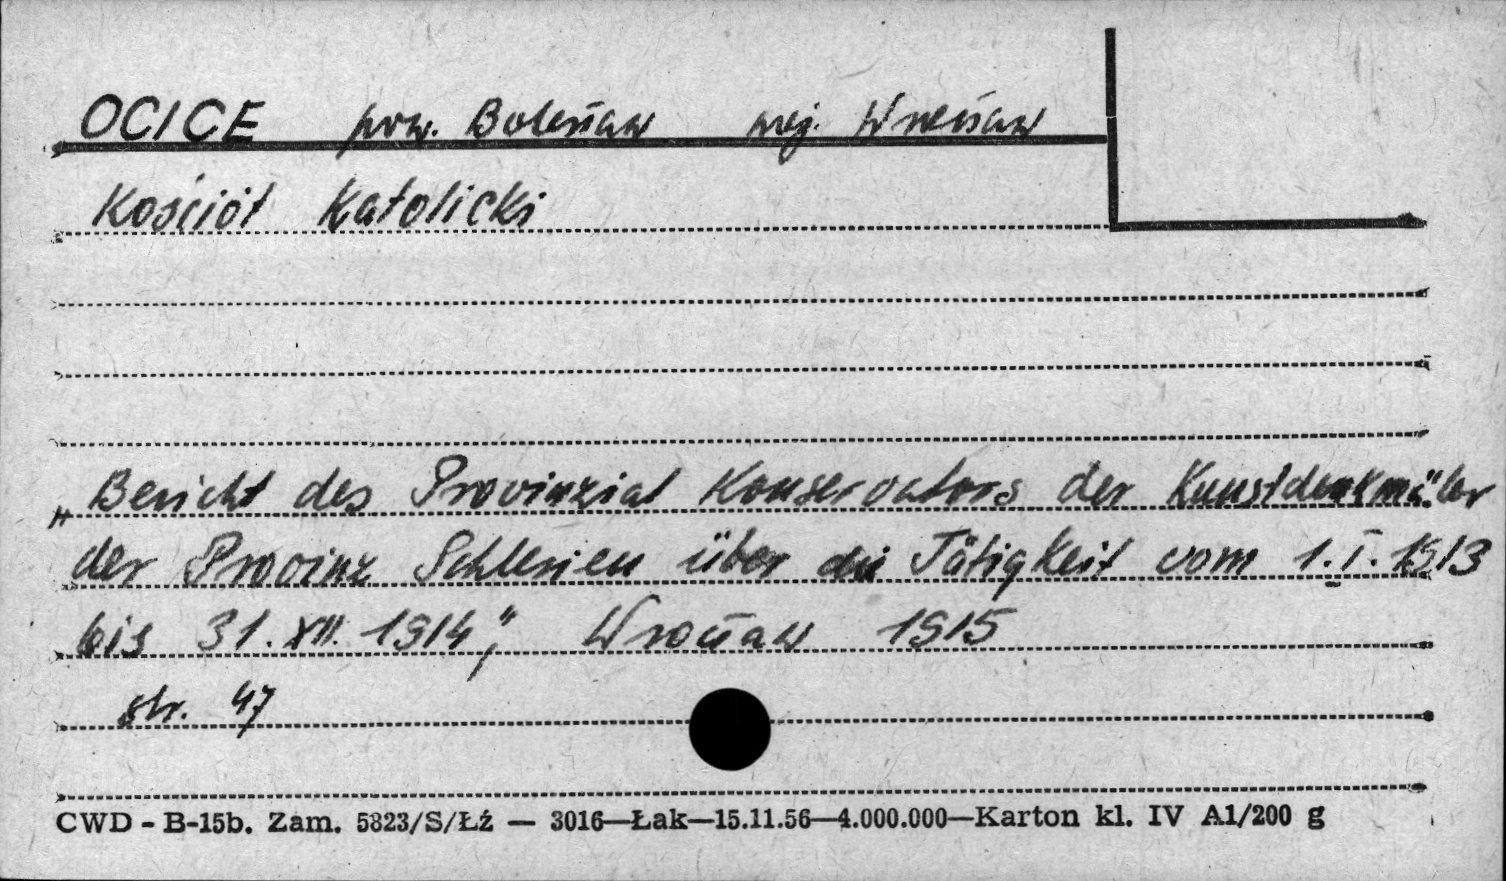 OCICE pow. Bolesław woj. Wrocław
Kościół Katolicki
"Bericht des Provinzial Konservators der Kunstdenkmäler
der Provinz Schlesien über die Tätigkeit vom 1.I.1913
bis 31.XII.1914", Wrocław 1915
str. 47
CWD - B-15b. Zam. 5823/S/Łź — 3016—Łak—15.11.56—4.000.000—Karton kl. IV A1/200 g